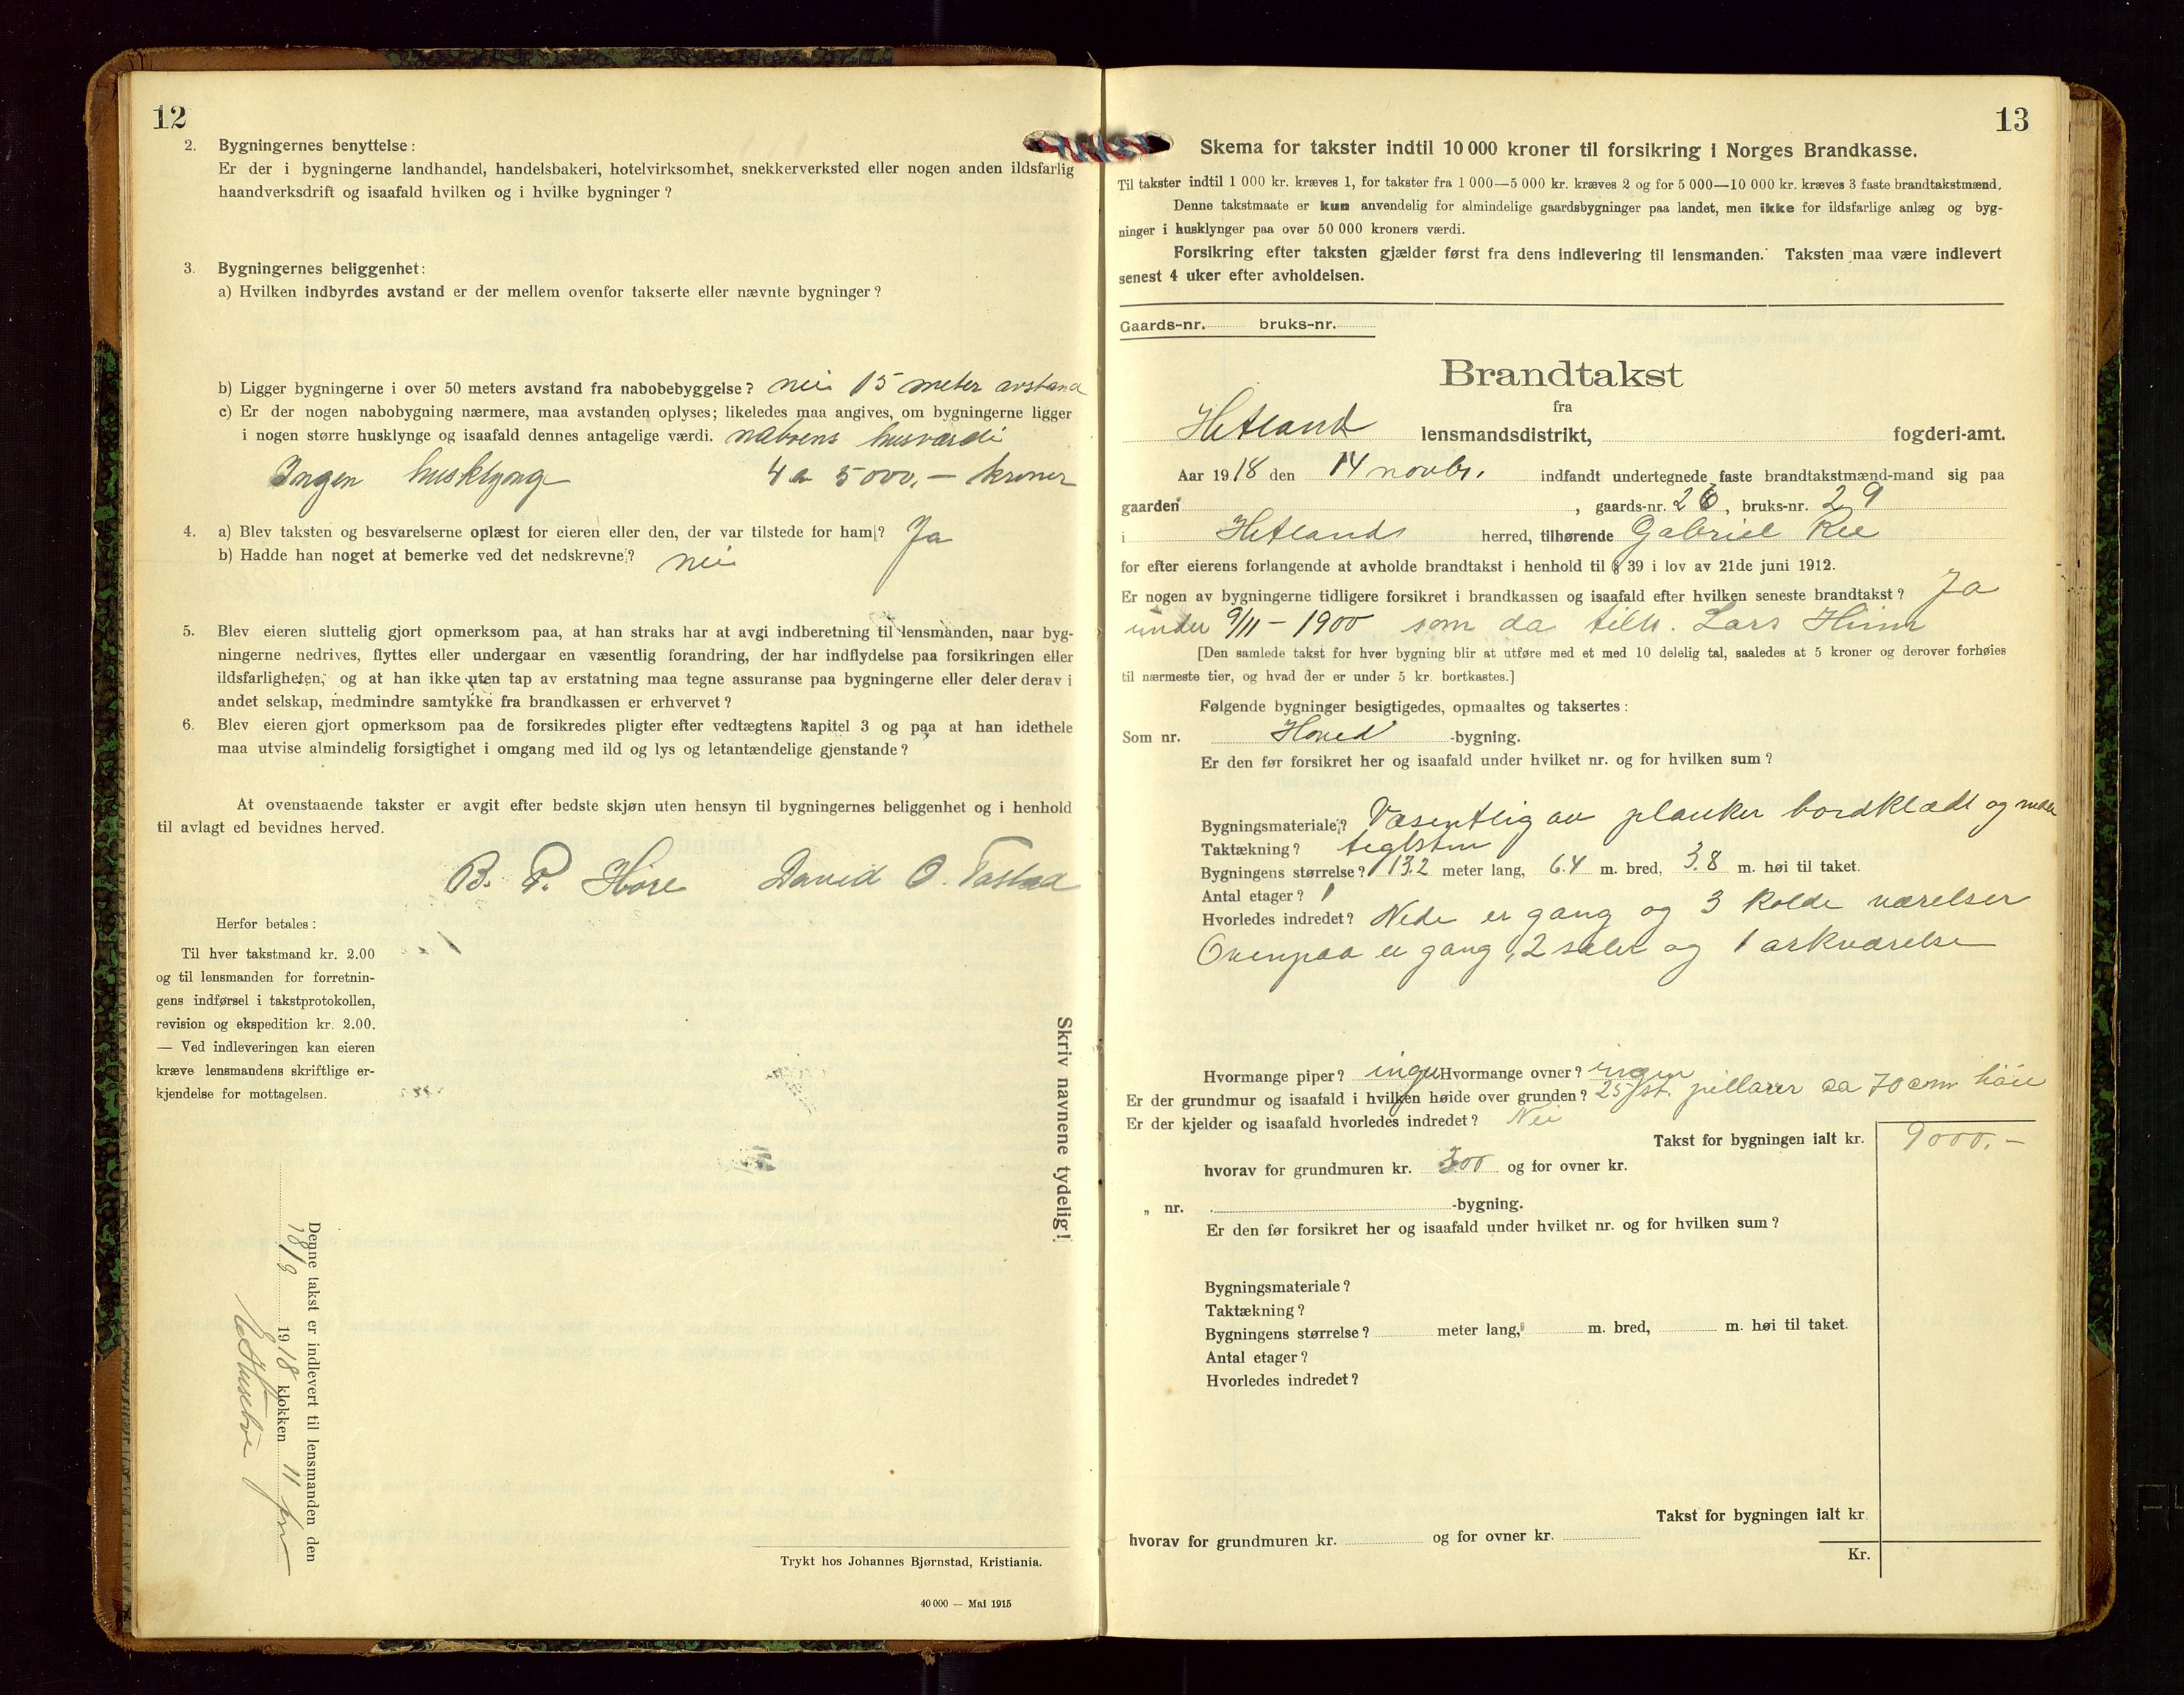 12
2. Bygningernes benyttelse:
Er der i bygningerne landhandel, handelsbakeri, hotelvirksomhet, snekkerverksted eller nogen anden ildsfarlig
haandverksdrift og isaafald hvilken og i hvilke bygninger?
3. Bygningernes beliggenhet:
a) Hvilken indbyrdes avstand er der mellem ovenfor takserte eller nævnte bygninger?
b) Ligger bygningerne i over 50 meters avstand fra nabobebyggelse? nei 15 meter avstand
c) Er der nogen nabobygning nærmere, maa avstanden oplyses; likeledes maa angives, om bygningerne ligger
i nogen større husklynge og isaafald dennes antagelige værdi. naboens husværdi
Ingen husklynge 4 a 5000,- kroner
4. a) Blev taksten og besvarelserne oplæst for eieren eller den, der var tilstede for ham? Ja
b) Hadde han noget at bemerke ved det nedskrevne? nei
5. Blev eieren sluttelig gjort opmerksom paa, at han straks har at avgi indberetning til lensmanden, naar byg-
ningerne nedrives, flyttes eller undergaar en væsentlig forandring, der har indflydelse paa forsikringen eller
ildsfarligheten, og at han ikke uten tap av erstatning maa tegne assuranse paa bygningerne eller deler derav i
andet selskap, medmindre samtykke fra brandkassen er erhvervet?
6. Blev eieren gjort opmerksom paa de forsikredes pligter efter vedtægtens kapitel 3 og paa at han idethele
maa utvise almindelig forsigtighet i omgang med ild og lys og letantændelige gjenstande?
At ovenstaaende takster er avgit efter bedste skjøn uten hensyn til bygningernes beliggenhet og i henhold
til avlagt ed bevidnes herved.
B. P. Hore David O. Tastad
Herfor betales:
Til hver takstmand kr. 2.00
og til lensmanden for forretnin-
gens indførsel i takstprotokollen,
revision og ekspedition kr. 2.00.
— Ved indleveringen kan eieren
kræve lensmandens skriftlige er-
kjendelse for mottagelsen.
Skriv navnene tydelig!
Denne takst er indlevert til lensmanden den
1918 klokken 11 fm
Trykt hos Johannes Bjørnstad, Kristiania.
40 000 — Mai 1915
13
Skema for takster indtil 10 000 kroner til forsikring i Norges Brandkasse.
Til takster indtil 1 000 kr. kræves 1, for takster fra 1 000—5 000 kr. kræves 2 og for 5 000—10 000 kr. kræves 3 faste brandtakstmænd.
Denne takstmaate er kun anvendelig for almindelige gaardsbygninger paa landet, men ikke for ildsfarlige anlæg og byg-
ninger i husklynger paa over 50 000 kroners værdi.
Forsikring efter taksten gjælder først fra dens indlevering til lensmanden. Taksten maa være indlevert
senest 4 uker efter avholdelsen.
Gaards-nr. bruks-nr.
Brandtakst
fra
Hetland lensmandsdistrikt, fogderi-amt.
Aar 1918 den 14 novbr. indfandt undertegnede faste brandtakstmænd-mand sig paa
gaarden , gaards-nr. 26, bruks-nr. 29
i Hetlands herred, tilhørende Gabriel Ree
for efter eierens forlangende at avholde brandtakst i henhold til § 39 i lov av 21de juni 1912.
Er nogen av bygningerne tidligere forsikret i brandkassen og isaafald efter hvilken seneste brandtakst? Ja
under 9/11 - 1900 som da tilh. Lars
[Den samlede takst for hver bygning blir at utføre med et med 10 delelig tal, saaledes at 5 kroner og derover forhøies
til nærmeste tier, og hvad der er under 5 kr. bortkastes.]
Følgende bygninger besigtigedes, opmaaltes og taksertes:
Som nr. Hoved -bygning.
Er den før forsikret her og isaafald under hvilket nr. og for hvilken sum?
Bygningsmateriale? Væsentlig av planker bordklædt og
Taktækning? teglsten
Bygningens størrelse? 13.2 meter lang, 6.4 m. bred, 3.8 m. høi til taket.
Antal etager? 1
Hvorledes indredet? Nede er gang og 3 kolde værelser
Ovenpaa er gang, 2 saler og 1 arkværelse
Hvormange piper? ingen Hvormange ovner? ingen
Er der grundmur og isaafald i hvilken høide over grunden? 25 st. pillarer ca 70 cm höie
Er der kjelder og isaafald hvorledes indredet? Nei
Takst for bygningen ialt kr. 9000.-
hvorav for grundmuren kr. 300 og for ovner kr.
„ nr. -bygning.
Er den før forsikret her og isaafald under hvilket nr. og for hvilken sum?
Bygningsmateriale?
Taktækning?
Bygningens størrelse? meter lang, m. bred, m. høi til taket.
Antal etager?
Hvorledes indredet?
Takst for bygningen ialt kr
hvorav for grundmuren kr. og for ovner kr.
Kr.